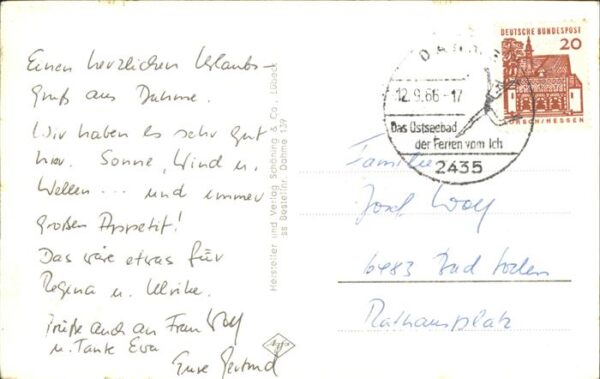 Einen herzlichen Urlaubs-
gruß aus Dahme.
Wir haben es sehr gut
hier. Sonne, Wind u.
Wellen... und immer
großen Appetit!
Das wäre etwas für
Regina u. Ulrike.
Grüße auch an Frau Wolf
u. Tante Eva
Eure Gertrud
Hersteller und Verlag Schöning & Co., Lübeck
ss Bestellnr. Dahme 139
Agfa
DEUTSCHE BUNDESPOST
20
LORSCH/HESSEN
12.9.66-17
Das Ostseebad
der Ferien vom Ich
2435
Familie
Josef Wolf
6483 Bad Soden
Rathausplatz